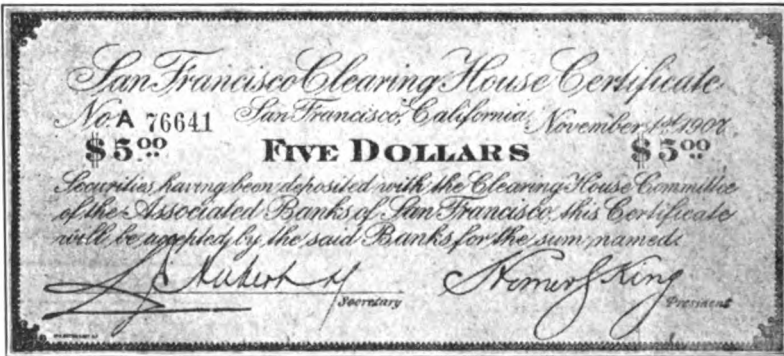 San Francisco Clearing House Certificate
No. A 76641 San Francisco, California, November 1st 1907.
$5.00 FIVE DOLLARS $5.00
Securities having been deposited with the Clearing House Committee
of the Associated Banks of San Francisco, this Certificate
will be accepted by the said Banks for the sum named.
Homer S King
Secretary President